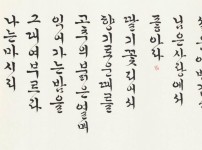 님은 사랑에서
좋아라
딸기꽃 피어서
향기로운 때를
고초의 붉은 열매
익어가는 밤을
그대여 부르라
나는 마시리